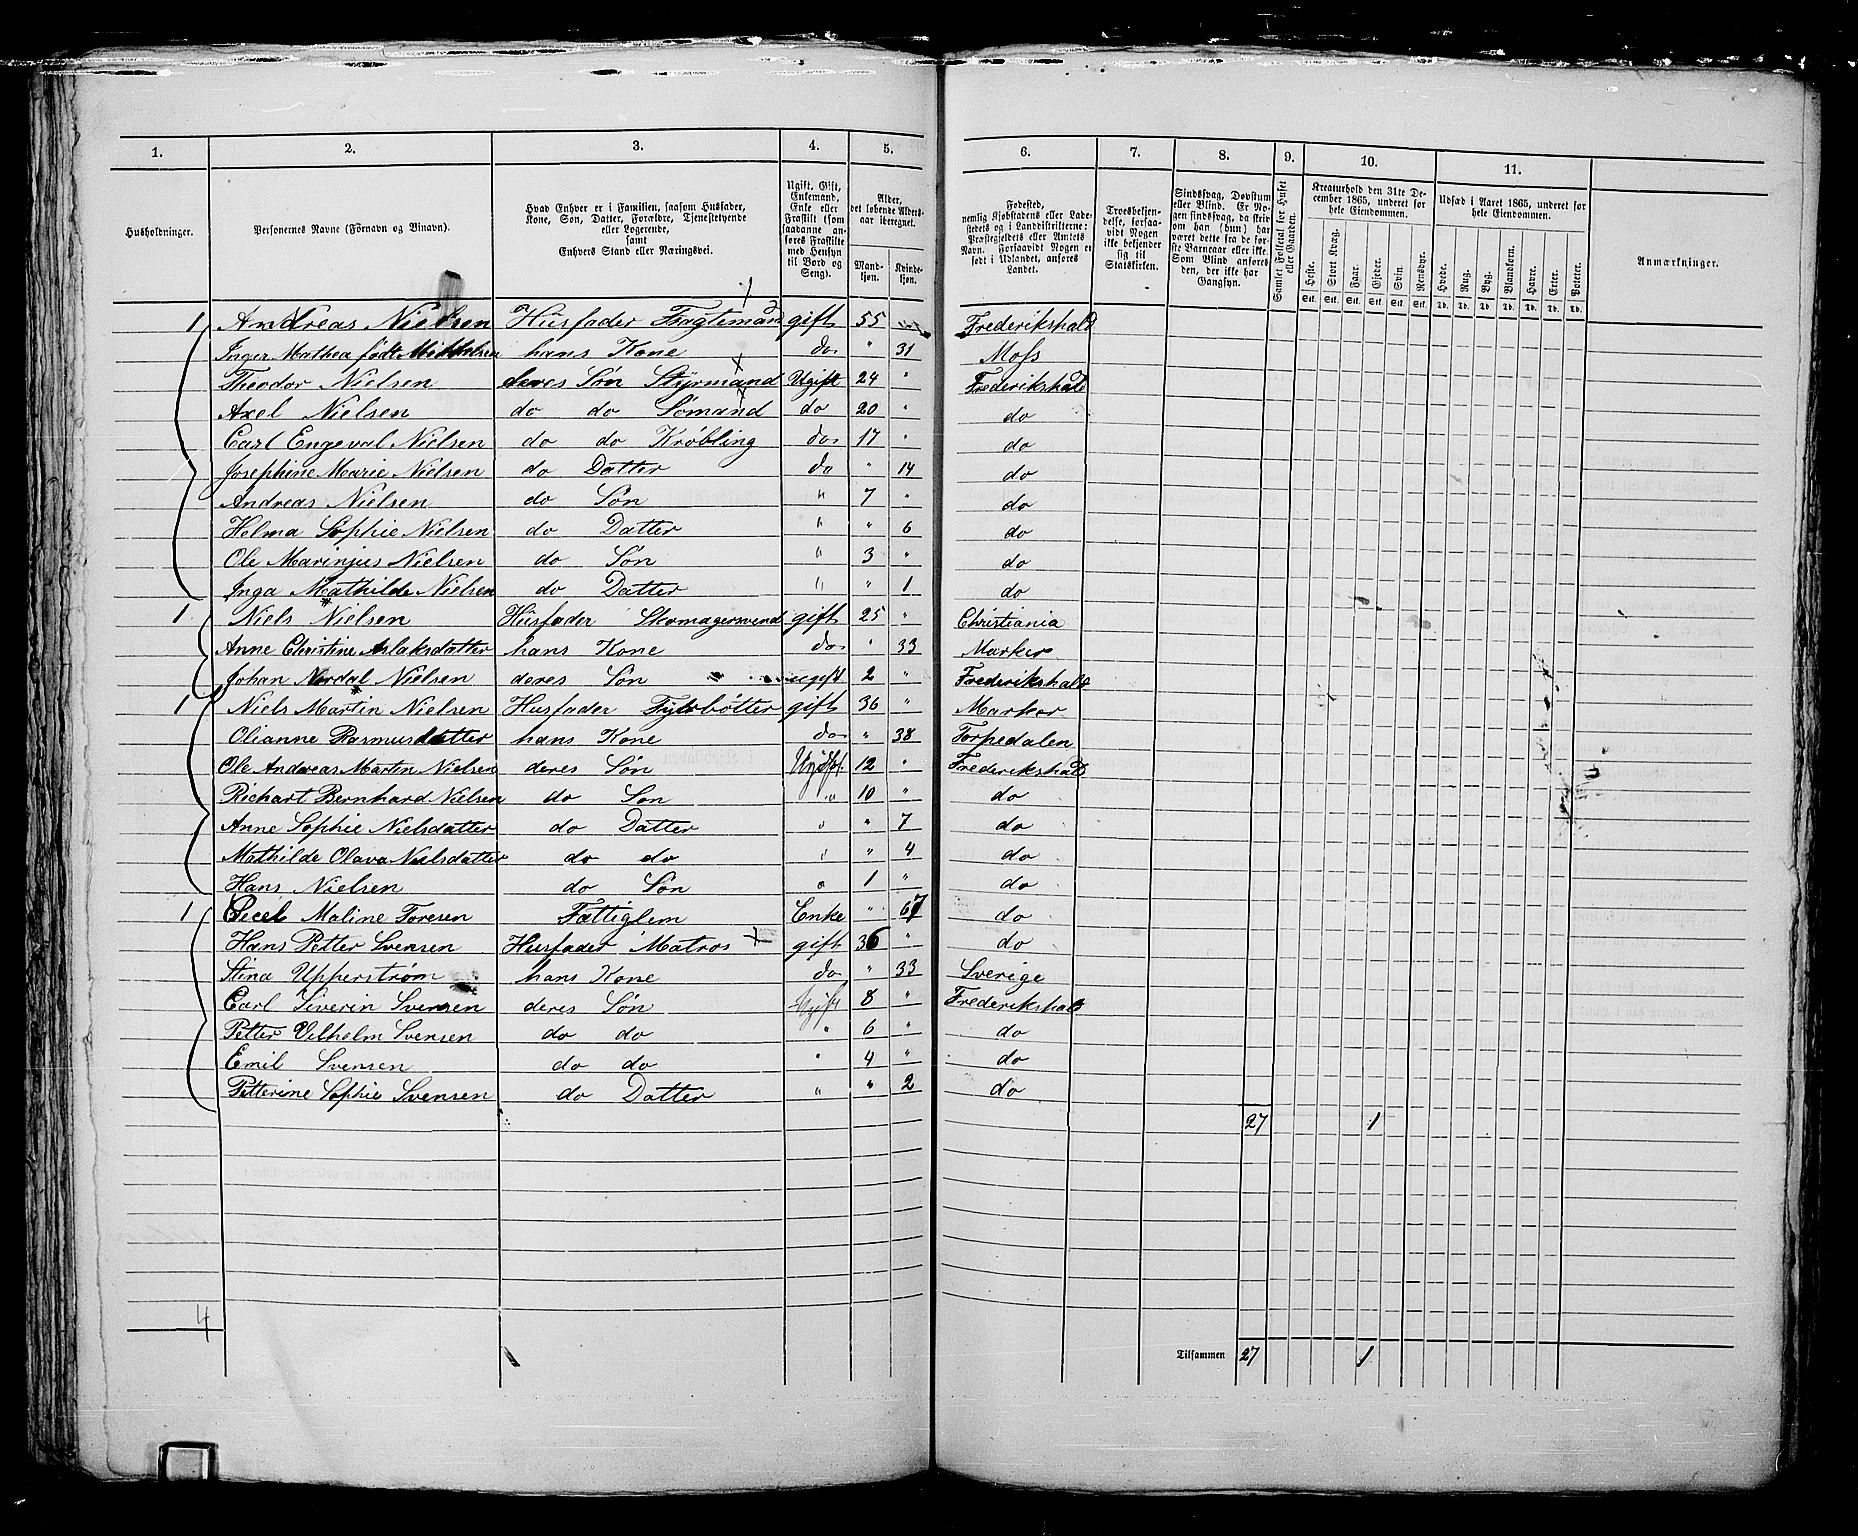 1. 2. 3. 4. 5. 6. 7. 8. 9. 10. 11.
Husholdninger. Personernes Navne (Fornavn og Binavn). Hvad Enhver er i Familien, saasom Husfader, Kone, Søn, Datter, Forældre, Tjenestetyende eller Logerende, samt Enhvers Stand eller Næringsvei. Ugift, Gift, Enkemand, Enke eller Fraskilt (som saadanne anføres Fraskilte med Hensyn til Bord og Seng). Alder, det løbende Aldersaar iberegnet. Mandkjøn. Kvindekjøn. Fødested, nemlig Kjøbstadens eller Ladestedets og i Landdistrikterne: Præstegjeldets eller Annexets Navn. Forsaavidt Nogen er født i Udlandet, anføres Landet. Troesbekjendelse, forsaavidt Nogen ikke bekjender sig til Statskirken. Sindssvag, Døvstum eller Blind. Er Nogen sindssvag, da skrives om han (hun) har været dette fra de første Barneaar eller ikke. Som Blind anføres den, der ikke har Gangsyn. Samlet Folketal for Huset eller Gaarden. Kreaturhold den 31te December 1865, underet for hele Eiendommen. Heste. Stort Kvæg. Faar. Gjeder. Svin. Rensdyr. Udsæd i Aaret 1865, underet for hele Eiendommen. Hvede. Rug. Byg. Blandkorn. Havre. Erter. Poteter. Anmærkninger.
Stk. Stk. Stk. Stk. Stk. Stk. Td. Td. Td. Td. Td. Td. Td.
1 Andreas Nielsen Husfader Fragtemand gift 55 Frederikshald
Inger Mathea født Mikkelsen hans Kone do 〃 31 Moss
Theodor Nielsen deres Søn Styrmand Ugift 24 〃 Frederikshald
Axel Nielsen do do Sømand do 20 〃 do
Carl Engeval Nielsen do do Krøbling do 17 〃 do
Josephine Marie Nielsen do Datter do 〃 14 do
Andreas Nielsen do Søn 〃 7 〃 do
Helma Sophie Nielsen do Datter 〃 〃 6 do
Ole Marinjus Nielsen do Søn 〃 3 〃 do
Inga Mathilde Nielsen do Datter 〃 〃 1 do
1 Niels Nielsen Husfader Skomagersvend gift 25 〃 Christiania
Anne Christine Aslaksdatter hans Kone do 〃 33 Marker
Johan Nordal Nielsen deres Søn ugift 2 〃 Frederikshald
1 Niels Martin Nielsen Husfader Fyrbøtter gift 36 〃 Marker
Olianne Rasmusdatter hans Kone do 〃 38 Torpedalen
Ole Andreas Martin Nielsen deres Søn Ugift 12 〃 Frederikshald
Richart Bernhard Nielsen do Søn 〃 10 〃 do
Anne Sophie Nielsdatter do Datter 〃 〃 7 do
Mathilde Olava Nielsdatter do do 〃 〃 4 do
Hans Nielsen do Søn 〃 1 〃 do
1 Maline Toresen Fattiglem Enke 〃 67 do
Hans Petter Svensen Husfader Matros gift 36 〃 do
Stina Upperstrøm hans Kone do 〃 33 Sverige
Carl Siverin Svensen deres Søn Ugift 8 〃 Frederikshald
Petter Vilhelm Svensen do do 〃 6 〃 do
Emil Svensen do do 〃 4 〃 do
Petterine Sophie Svensen do Datter 〃 〃 2 do
27 1
4
Tilsammen 27 1